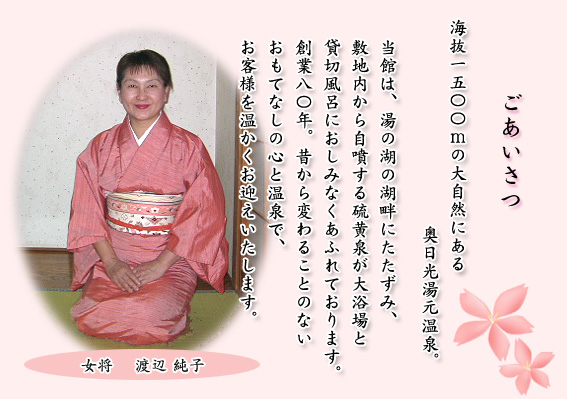 ごあいさつ
海抜一五〇〇mの大自然にある
奥日光湯元温泉。
当館は、湯の湖の湖畔にたたずみ、
敷地内から自噴する硫黄泉が大浴場と
貸切風呂におしみなくあふれております。
創業八〇年。昔から変わることのない
おもてなしの心と温泉で、
お客様を温かくお迎えいたします。
女将 渡辺 純子